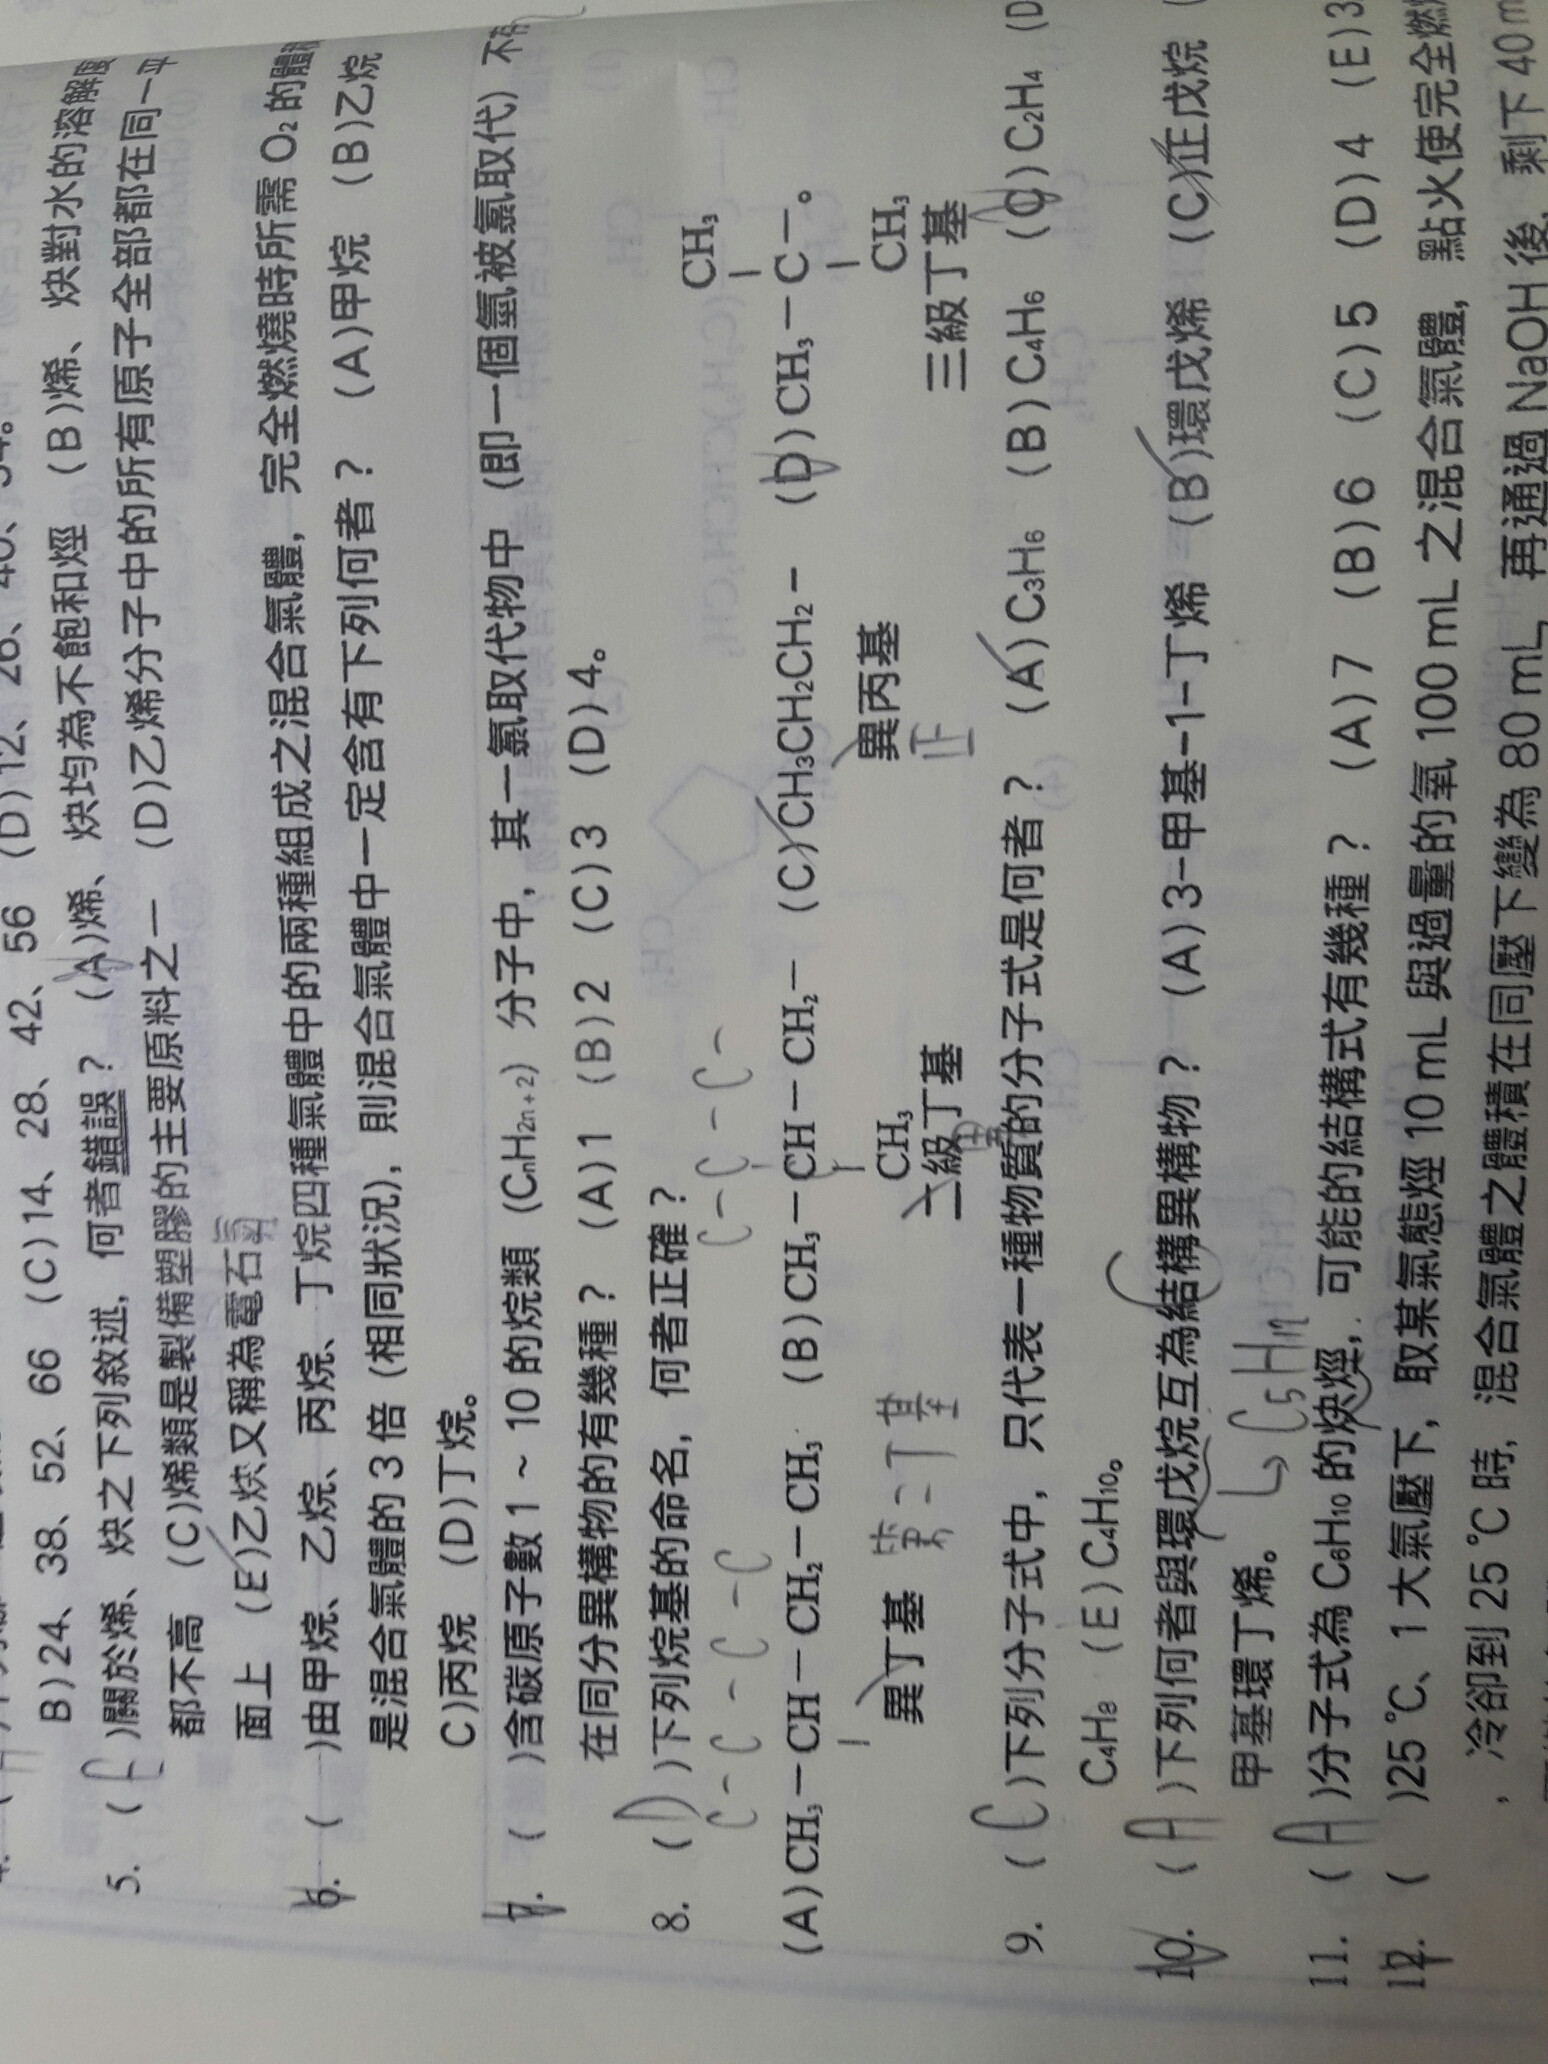 B)24、38、52、66 (C)14、28、42、56 (D)12、26、40、54。
5. ( )關於烯、炔之下列敘述，何者錯誤？ (A)烯、炔均為不飽和烴 (B)烯、炔對水的溶解度
都不高 (C)烯類是製備塑膠的主要原料之一 (D)乙烯分子中的所有原子全部都在同一平
面上 (E)乙炔又稱為電石氣
6. ( )由甲烷、乙烷、丙烷、丁烷四種氣體中的兩種組成之混合氣體，完全燃燒時所需 O₂ 的體
是混合氣體的 3 倍 (相同狀況)，則混合氣體中一定含有下列何者？ (A)甲烷 (B)乙烷
C)丙烷 (D)丁烷。
7. ( )含碳原子數 1 ~ 10 的烷類 (CₙH₂ₙ₊₂) 分子中，其一氯取代物中 (即一個氫被氯取代) 不
在同分異構物的有幾種？ (A)1 (B)2 (C)3 (D)4。
8. (D)下列烷基的命名，何者正確？
C-C-C-C C-C-C-
CH₃
(A)CH₃－CH－CH₂－CH₃ (B)CH₃－CH－CH₂－ (C)CH₃CH₂CH₂－ (D)CH₃－C－。
CH₃ CH₃
異丁基 第二丁基 二級丁基 異 異丙基 正 三級丁基
9. (C)下列分子式中，只代表一種物質的分子式是何者？ (A)C₃H₆ (B)C₄H₆ (C)C₂H₄ (D
C₄H₈ (E)C₄H₁₀。
10. (A)下列何者與環戊烷互為結構異構物？ (A)3-甲基-1-丁烯 (B)環戊烯 (C)正戊烷 (
甲基環丁烯。 ↳C₅H₁₀
11. (A)分子式為 C₆H₁₀ 的炔烴，可能的結構式有幾種？ (A)7 (B)6 (C)5 (D)4 (E)3
12. ( )25 °C、1 大氣壓下，取某氣態烴 10 mL 與過量的氧 100 mL 之混合氣體，點火使完全燃
，冷卻到 25 °C 時，混合氣體之體積在同壓下變為 80 mL，再通過 NaOH 後，剩下 40 m